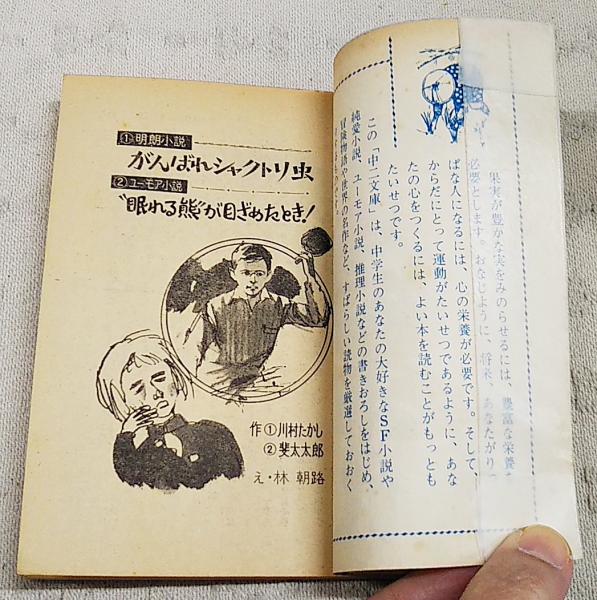 ①明朗小説
がんばれシャクトリ虫
②ユーモア小説
“眠れる熊”が目ざめたとき！
作①川村たかし
②斐太太郎
え・林 朝路
果実が豊かな実をみのらせるには、豊富な栄養
必要とします。おなじように、将来、あなたがり
ぱな人になるには、心の栄養が必要です。そして、
からだにとって運動がたいせつであるように、あな
たの心をつくるには、よい本を読むことがもっとも
たいせつです。
この「中二文庫」は、中学生のあなたの大好きなＳＦ小説や
純愛小説、ユーモア小説、推理小説などの書きおろしをはじめ、
冒険物語や世界の名作など、すばらしい読物を厳選しておおく